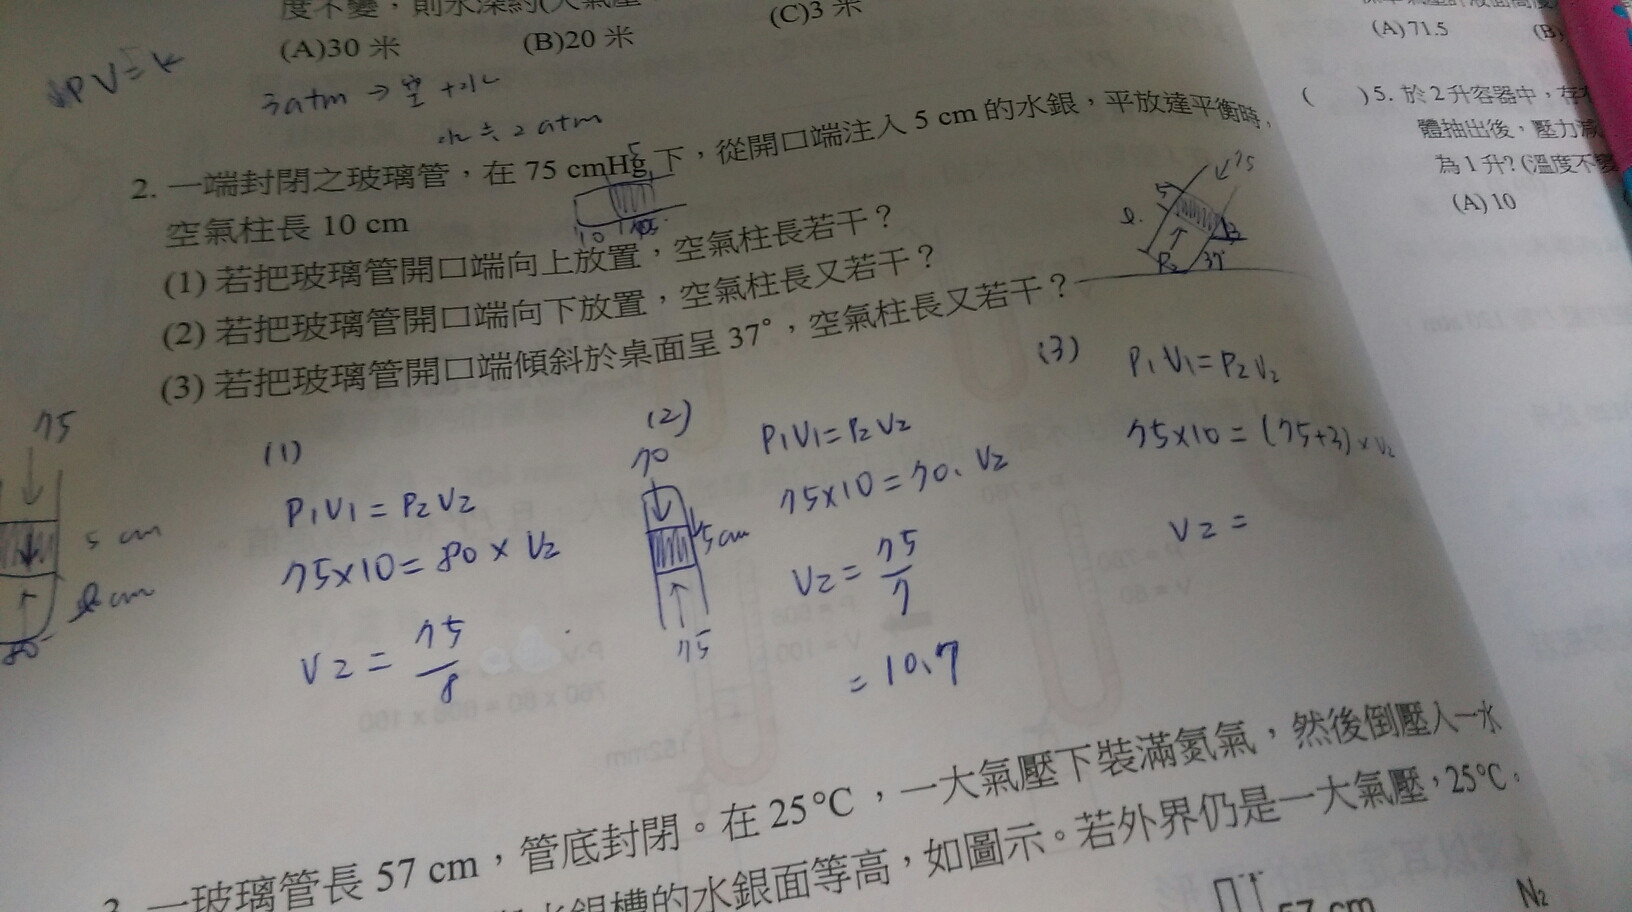 (A)30 米 (B)20 米 (C)3 米
PV=k
3atm → 空 + 水
水 ≒ 2 atm
2. 一端封閉之玻璃管,在 75 cmHg 下,從開口端注入 5 cm 的水銀,平放達平衡時,
空氣柱長 10 cm
(1) 若把玻璃管開口端向上放置,空氣柱長若干?
(2) 若把玻璃管開口端向下放置,空氣柱長又若干?
(3) 若把玻璃管開口端傾斜於桌面呈 37°,空氣柱長又若干?
5
10
75
5
3
ℓ
P₂
37°
75
5 cm
ℓ cm
80
(1)
P₁V₁=P₂V₂
75×10=80×V₂
V₂=75/8
(2)
70
5cm
75
P₁V₁=P₂V₂
75×10=70.V₂
V₂=75/7
=10.7
(3)
P₁V₁=P₂V₂
75×10=(75+3)×V₂
V₂=
一玻璃管長 57 cm,管底封閉。在 25℃,一大氣壓下裝滿氮氣,然後倒壓入一水
水銀槽的水銀面等高,如圖示。若外界仍是一大氣壓,25℃。
57 cm
N₂
(A)71.5
( )5. 於2升容器中,存
體抽出後,壓力減
為1升?(溫度不變
(A)10